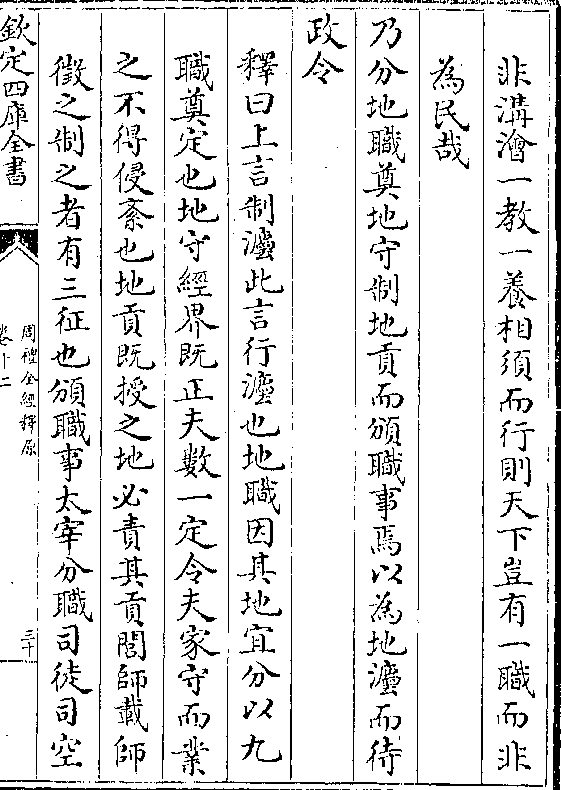 非溝澮一教一養相須而行則天下豈有一職而非
為民哉
乃分地職奠地守制地貢而頒職事焉以為地灋而待
政令
釋曰上言制灋此言行灋也地職因其地宜分以九
職奠定也地守經界既正夫數一定令夫家守而業
之不得侵紊也地貢既授之地必責其貢閭師載師
徵之制之者有三征也頒職事太宰分職司徒司空
欽定四庫全書
周禮全經釋原
卷十二
三十